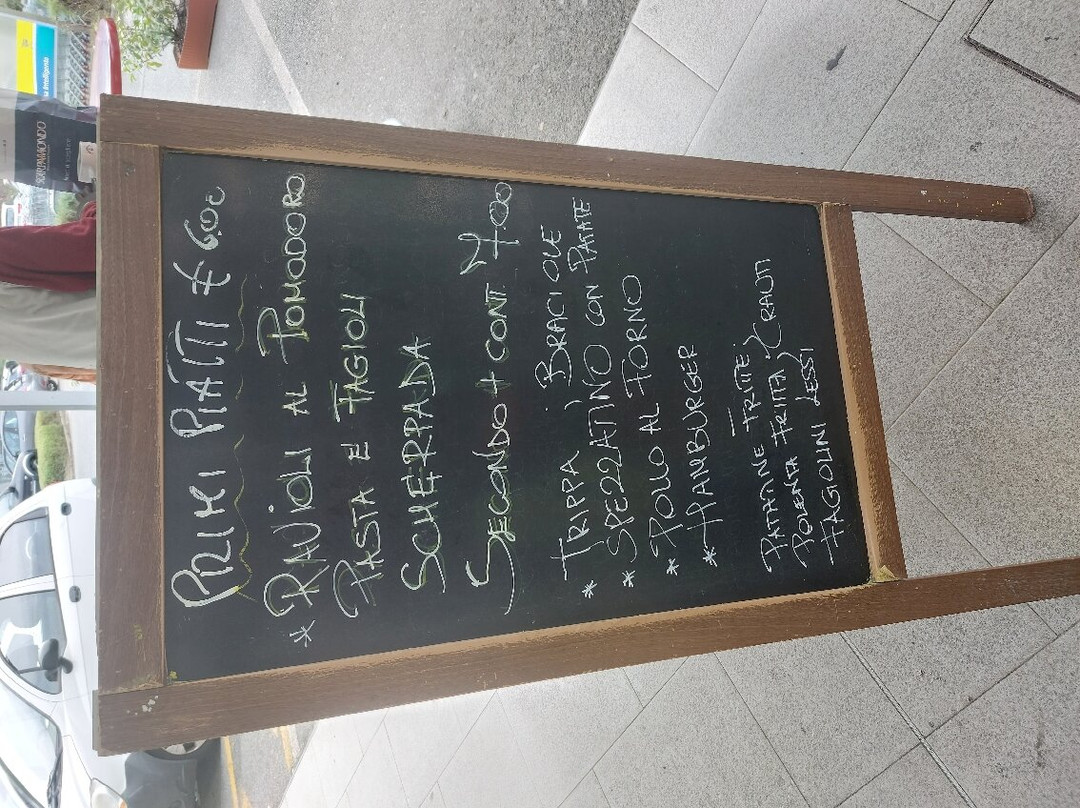 PRIMI PIATTI € 6.00
* RAVIOLI AL POMODORO
PASTA E FAGIOLI
SCHERPADA
SECONDO + CONT. 7.00
* TRIPPA, BRACIOLE
* SPEZZATINO CON PATATE
* POLLO AL FORNO
* HAMBURGER
PATATINE FRITTE,
POLENTA FRITTA, CRAUTI
FAGIOLINI LESSI